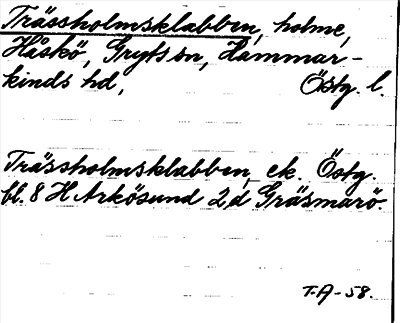 Trässholmsklabben, holme,
Håskö, Gryts sn, Hammar-
kinds hd, Östg. l.
Trässholmsklabben, ek. Östg.
bl. 8 H Arkösund 2,d Gräsmarö.
T-A-58.